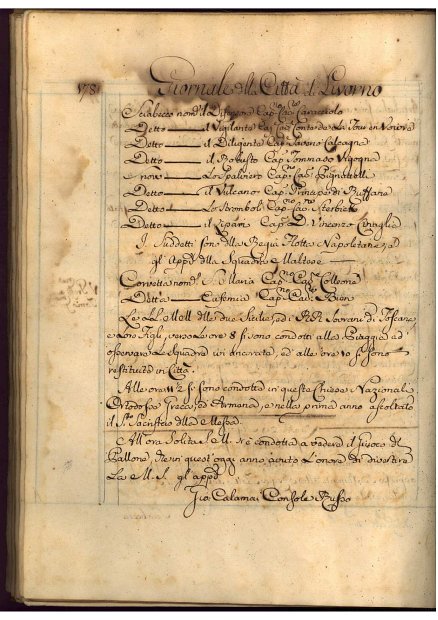 178
Giornale della Città di Livorno
Sciabecco nom.º il Difensore Cap. Cav. Caracciolo
Detto — il Vigilante Cap. Cav.
Detto — il Diligente Cap. Calcagna
Detto — il Robusto Cap. Tommaso Vigogna
Lo Sparviero Cap. Cav. Pignattelli
Detto — il Vulcano Cap. Principe di
Detto — Lo Stromboli Cap. Cav.
Detto — il Lipari Cap. D. Vincenzo
I Suddetti sono della Regia Flotta Napoletana, ed
gli app.º della Squadra Maltese —
Corvetta nom. S. Maria Cap. Cav. Colleone
Detta — Eufemia Cap. Cav.
Le LL. MM. delle due Sicilie, ed i RR. Sovrani di Toscana
e Loro Figli, verso Le ore 8 si sono condotti alle Spiaggie ad
osservare Le Squadre ivi ancorate, ed alle ore 10 si sono
restituiti in Città.
Alle ora 11 ½ si sono condotti in queste Chiese Nazionali
Ortodossa Greca, ed Armena, e nella prima anno ascoltato
il S.º Sacrificio della Messa.
All'ora Solita S. M. si è condotta a vedere il giuoco del
Pallone, che in quest'oggi anno avuto L'onore di divertire
La M. S. gl'app.
Calamai Console Russo